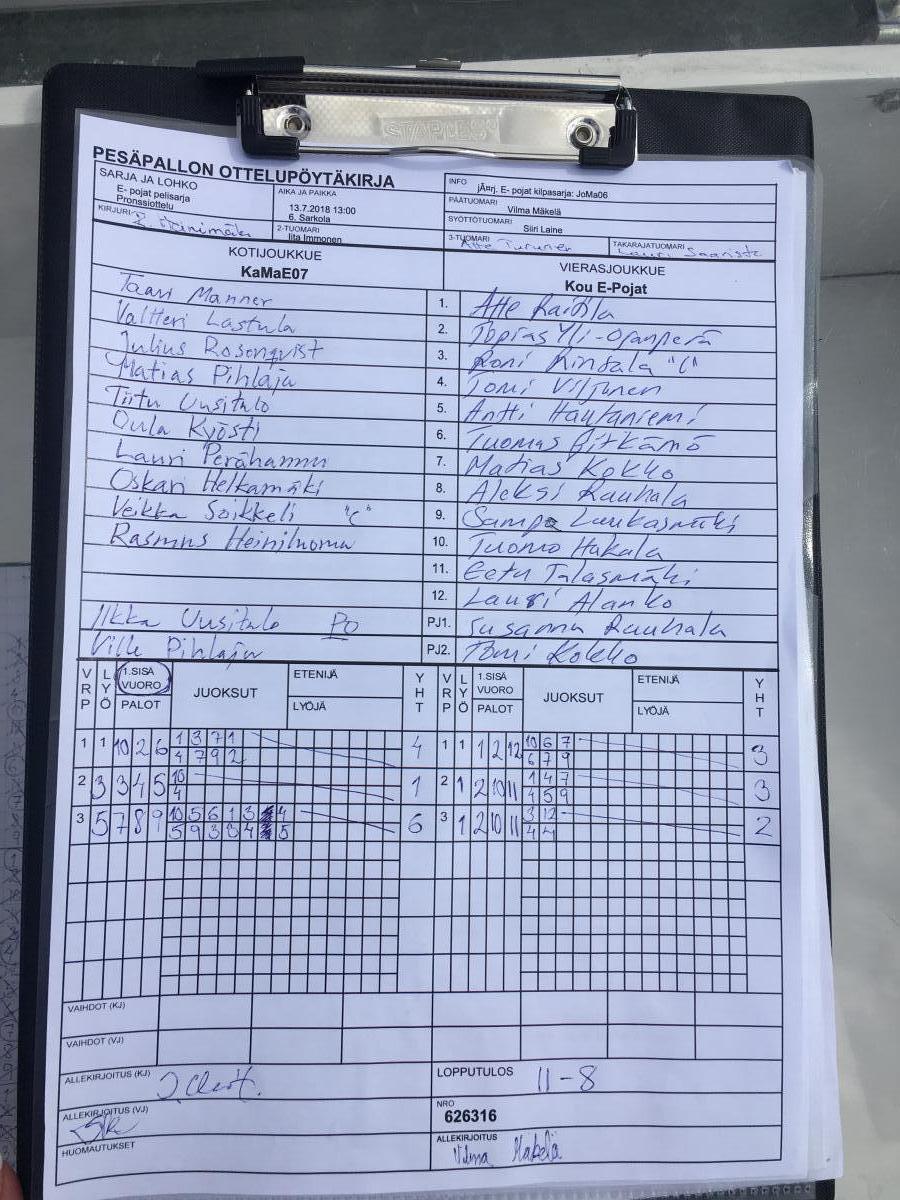 STAPLES
PESÄPALLON OTTELUPÖYTÄKIRJA
SARJA JA LOHKO
E- pojat pelisarja
Pronssiottelu
AIKA JA PAIKKA
13.7.2018 13:00
6. Sarkola
INFO
jÃ¤rj. E- pojat kilpasarja: JoMa06
PÄÄTUOMARI
Vilma Mäkelä
SYÖTTÖTUOMARI
Siiri Laine
KIRJURI
2-TUOMARI
Iita Immonen
3-TUOMARI
Atte Turunen
TAKARAJATUOMARI
Lauri Saaristo
KOTIJOUKKUE
KaMaE07
VIERASJOUKKUE
Kou E-Pojat
Taavi Manner 1. Atte Raitila
Valtteri Lastula 2. Topias Yli-Ojanperä
Julius Rosenqvist 3. Roni Rintala "C"
Matias Pihlaja 4. Tomi Viljanen
Tiitu Uusitalo 5. Antti Hautaniemi
Oula Kyösti 6. Tuomas Pitkämö
Lauri Perähannu 7. Matias Kokko
Oskari Helkamäki 8. Aleksi Rauhala
Veikka Soikkeli "C" 9. Sampo Laukasmäki
Rasmus Heiniluoma 10. Tuomo Hakala
11. Eetu Talasmäki
12. Lauri Alanko
Ilkka Uusitalo Po PJ1. Susanna Rauhala
Ville Pihlaja PJ2. Tomi Kokko
VRP LYÖ 1.SISÄ VUORO PALOT JUOKSUT ETENIJÄ LYÖJÄ YHT VRP LYÖ 1.SISÄ VUORO PALOT JUOKSUT ETENIJÄ LYÖJÄ YHT
1 1 10 2 6 1 3 7 1 4 1 1 1 2 12 10 6 7 3
4 7 9 2 6 7 9
2 3 3 4 5 10 1 2 1 2 10 11 1 4 7 3
4 4 5 9
3 5 7 8 9 10 5 6 1 3 4 6 3 1 2 10 11 3 12 2
5 9 3 3 4 5 4 4
VAIHDOT (KJ)
VAIHDOT (VJ)
ALLEKIRJOITUS (KJ)
LOPPUTULOS 11-8
ALLEKIRJOITUS (VJ)
NRO
626316
HUOMAUTUKSET
ALLEKIRJOITUS
Vilma Mäkelä